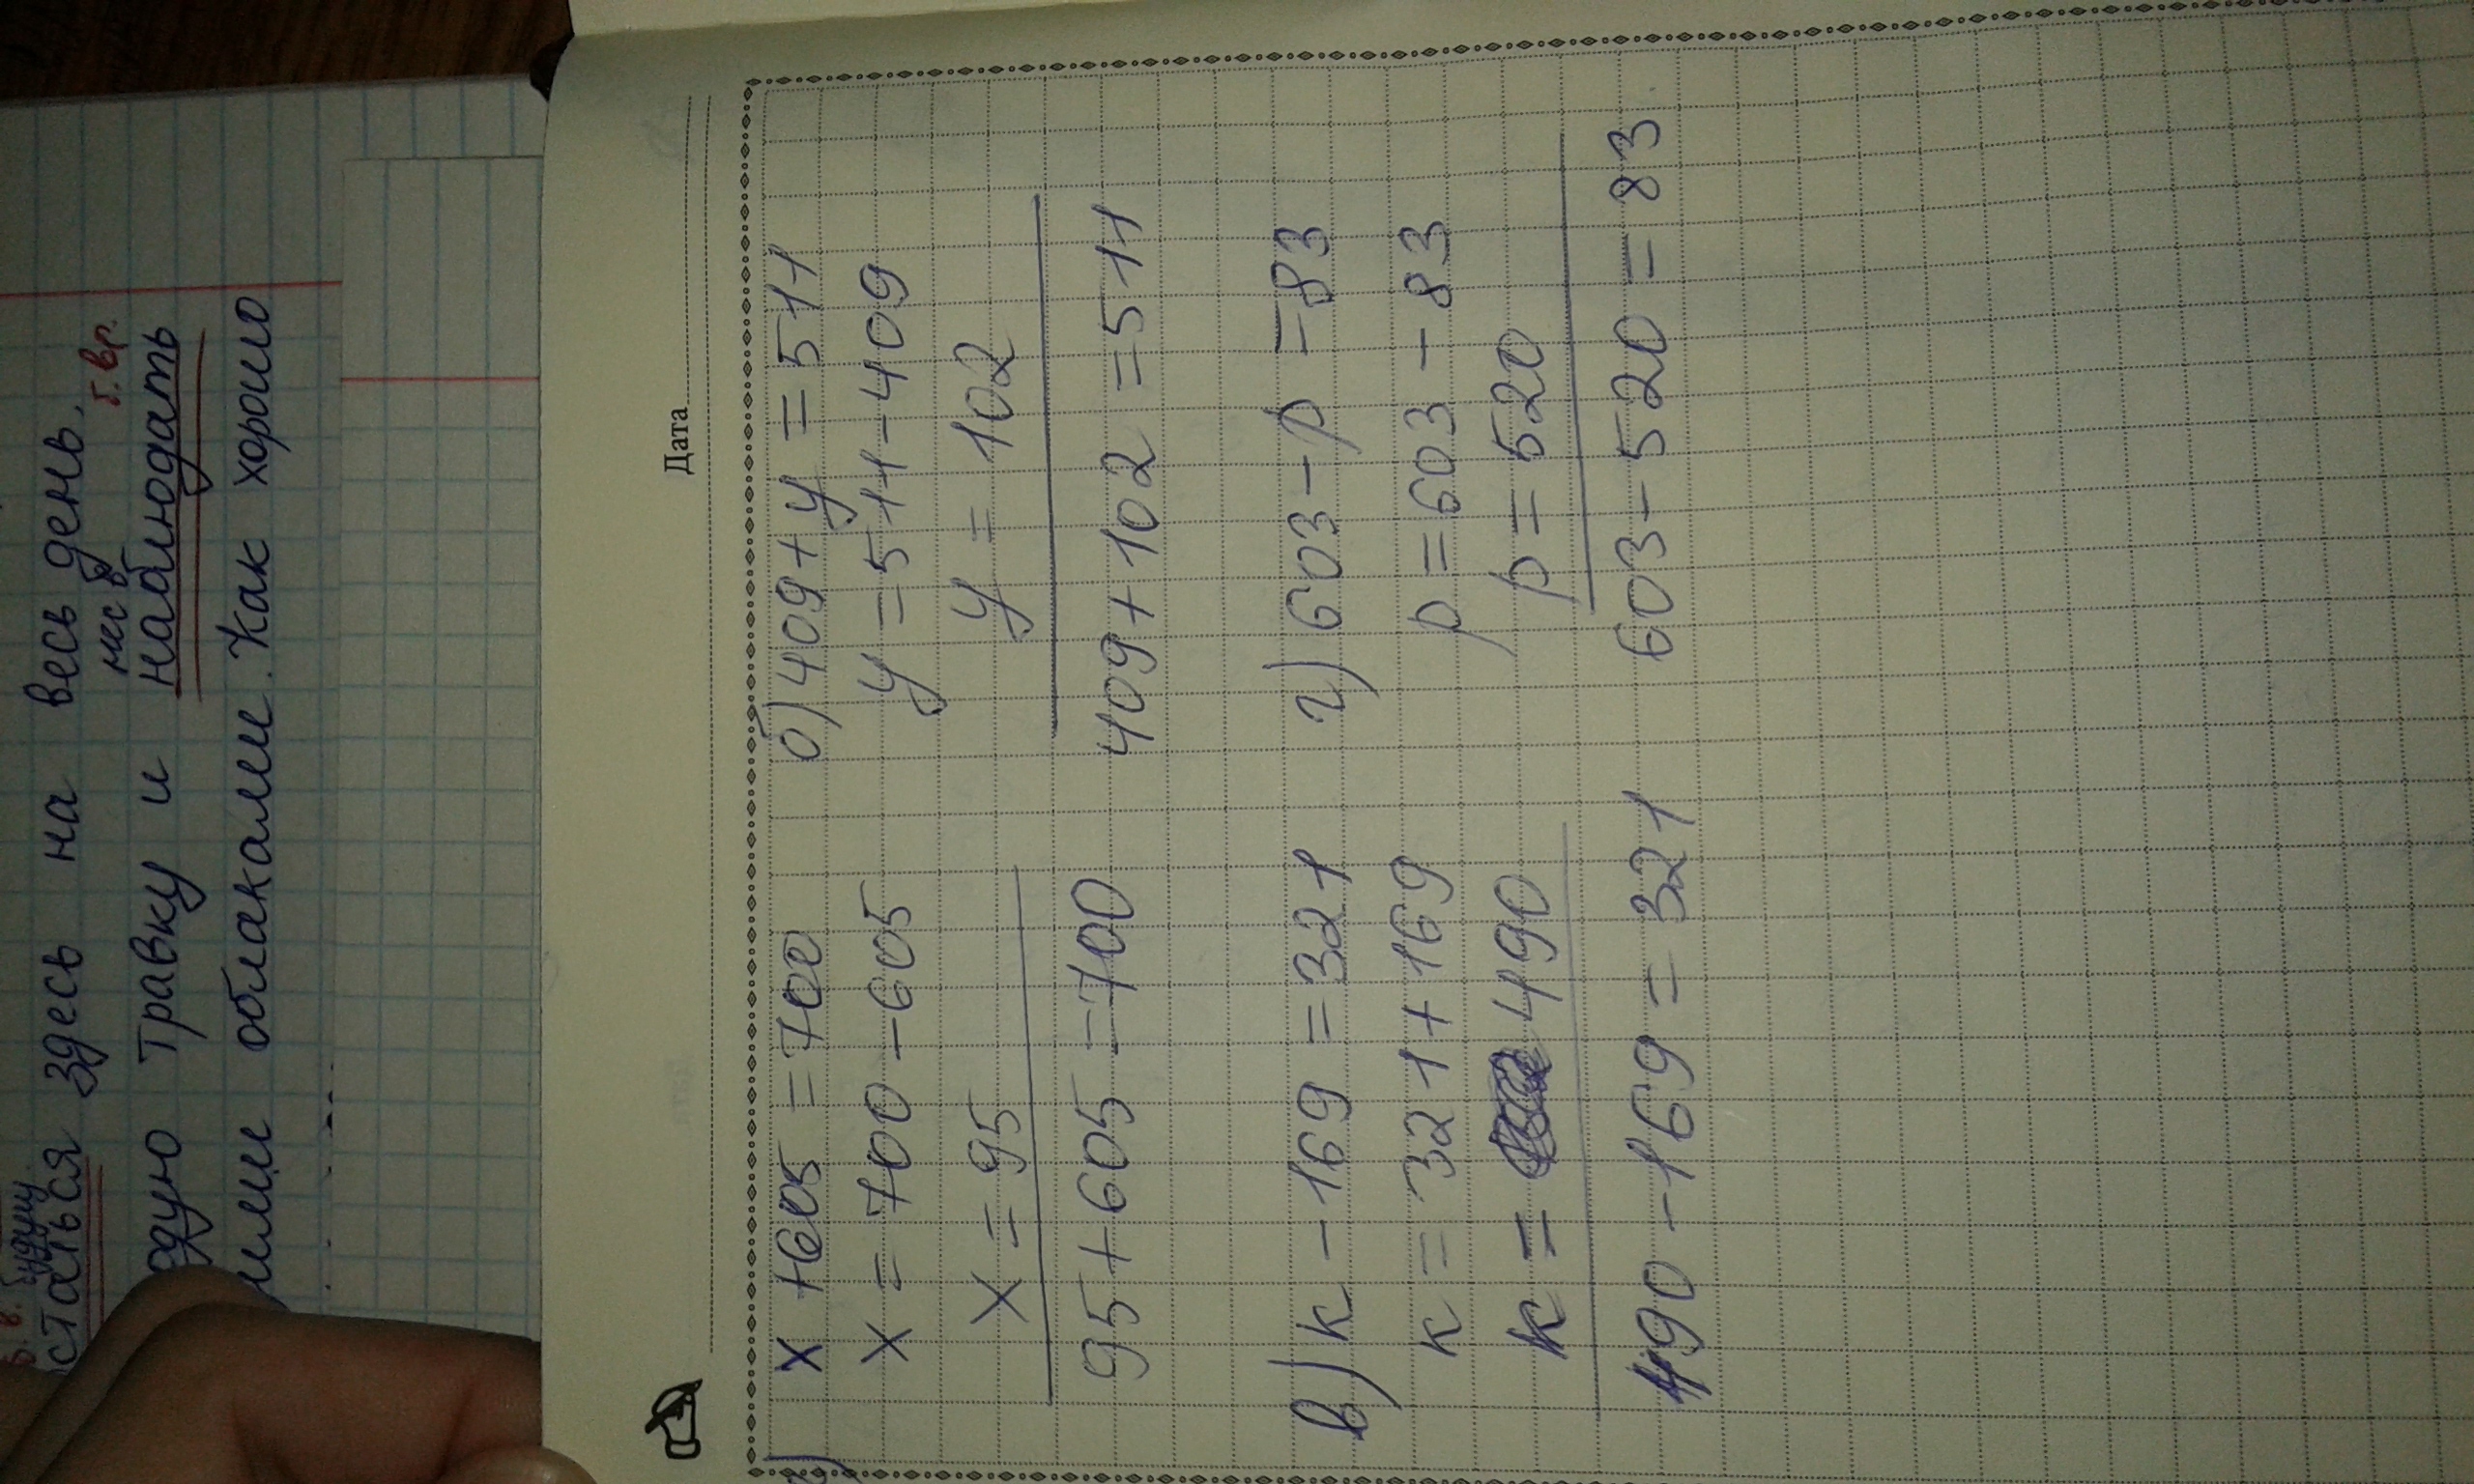 в. будущ.
сталься здесь на весь день.
нес в г. вр.
травку и наблюдать
облаками. Как хорошо
Дата
x + 605 = 700
x = 700 - 605
x = 95
95 + 605 = 700
б) 409 + y = 511
y = 511 - 409
y = 102
409 + 102 = 511
в) к - 169 = 321
к = 321 + 169
к = 490
490 - 169 = 321
г) 603 - p = 83
p = 603 - 83
p = 520
603 - 520 = 83